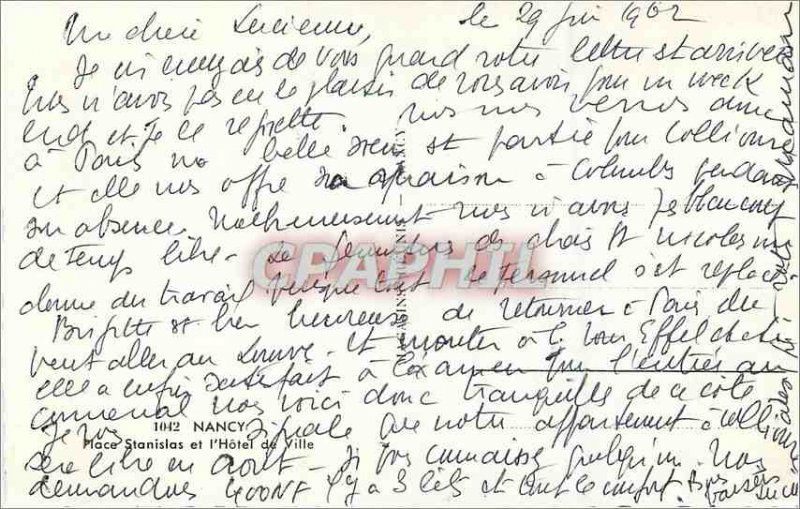 le 29 juin 1962
Ma chère Lucienne,
Je à de vous quand votre lettre est arrivée
nous n'avons pas eu le plaisir de vous avoir pour un week
end et je le regrette. nous nous donc
à Paris ma belle soeur est partie pour Collioure
et elle nous offre sa maison à Colombes pendant
son absence. Malheureusement nous n'avons pas beaucoup
de temps libre - Le des St Nicolas me
donne du travail puisque le personnel s'est
Brigitte est bien heureuse de retourner à Paris
veut aller au Louvre. et monter à la tour Eiffel
elle a enfin satisfait à l'examen pour l'entrée au
nous voici donc tranquille de ce côté
Je vous signale que notre appartement à Collioure
sera libre en août - Si vous connaissez quelqu'un. Nous
demandons 400NF il y a 3 lits et tout le confort. Bons baisers
MAGASINS RÉUNIS - NANCY
1042 NANCY
Place Stanislas et l'Hôtel de Ville
CPAPHIL